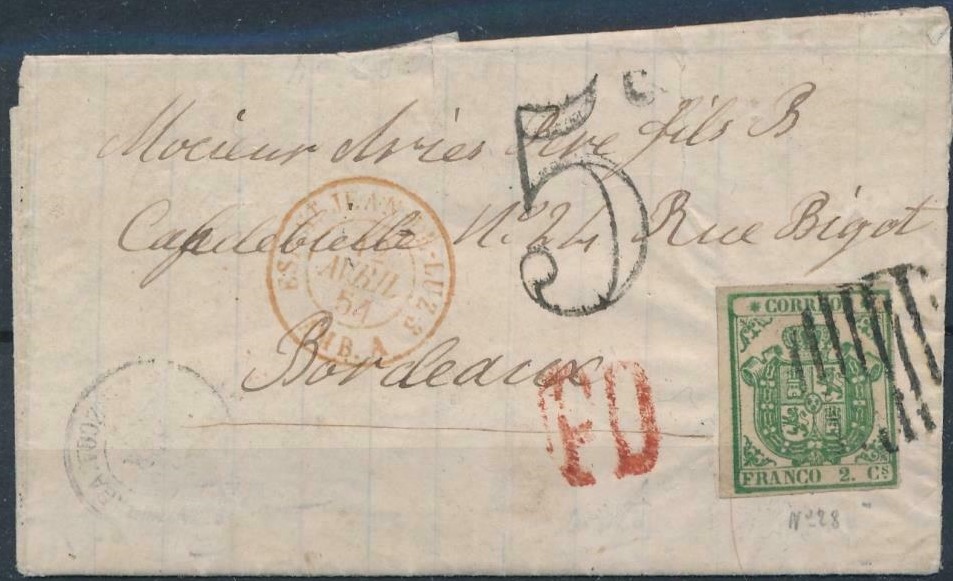 5 C.
Mocieur Aries Pere fils B
Capdebielle N. 24 Rue Bigot
Bordeaux
ESP. ST JEAN-DE-LUZ 3
AVRIL
54
AMB. A
PD
CORREOS
FRANCO 2. Cs
Nº 28